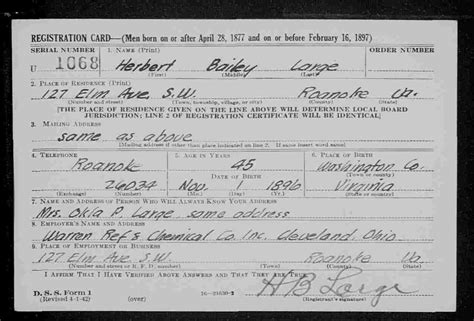 REGISTRATION CARD—(Men born on or after April 28, 1877 and on or before February 16, 1897)
SERIAL NUMBER 1. NAME (Print) ORDER NUMBER
U 1068 Herbert Bailey Large
(First) (Middle) (Last)
2. PLACE OF RESIDENCE (Print)
127 Elm Ave. S.W. Roanoke Va.
(Number and street) (Town, township, village, or city) (County) (State)
[THE PLACE OF RESIDENCE GIVEN ON THE LINE ABOVE WILL DETERMINE LOCAL BOARD
JURISDICTION; LINE 2 OF REGISTRATION CERTIFICATE WILL BE IDENTICAL]
3. MAILING ADDRESS
same as above
[Mailing address if other than place indicated on line 2. If same insert word same]
4. TELEPHONE 5. AGE IN YEARS 6. PLACE OF BIRTH
Roanoke 45 Washington Co.
DATE OF BIRTH (Town or county)
26034 Nov. 1 1896 Virginia
(Exchange) (Number) (Mo.) (Day) (Yr.) (State or country)
7. NAME AND ADDRESS OF PERSON WHO WILL ALWAYS KNOW YOUR ADDRESS
Mrs. Okla P. Large, same address
8. EMPLOYER'S NAME AND ADDRESS
Warren Ref's Chemical Co. Inc. Cleveland, Ohio
9. PLACE OF EMPLOYMENT OR BUSINESS
127 Elm Ave. S.W. Roanoke Va.
(Number and street or R. F. D. number) (Town) (County) (State)
I AFFIRM THAT I HAVE VERIFIED ABOVE ANSWERS AND THAT THEY ARE TRUE.
H B Large
D. S. S. Form 1
(Revised 4-1-42) (over) (Registrant's signature)